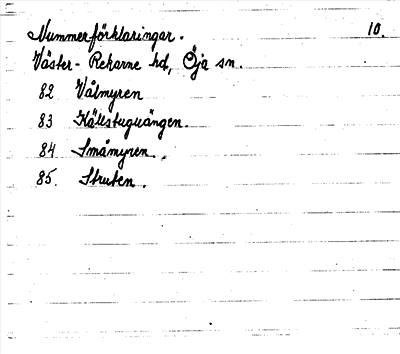 Nummerförklaringar. 10.
Väster-Rekarne hd, Öja sn.
82 Välmyren
83 Källstuguängen.
84 Småmyren.
85. Struten.